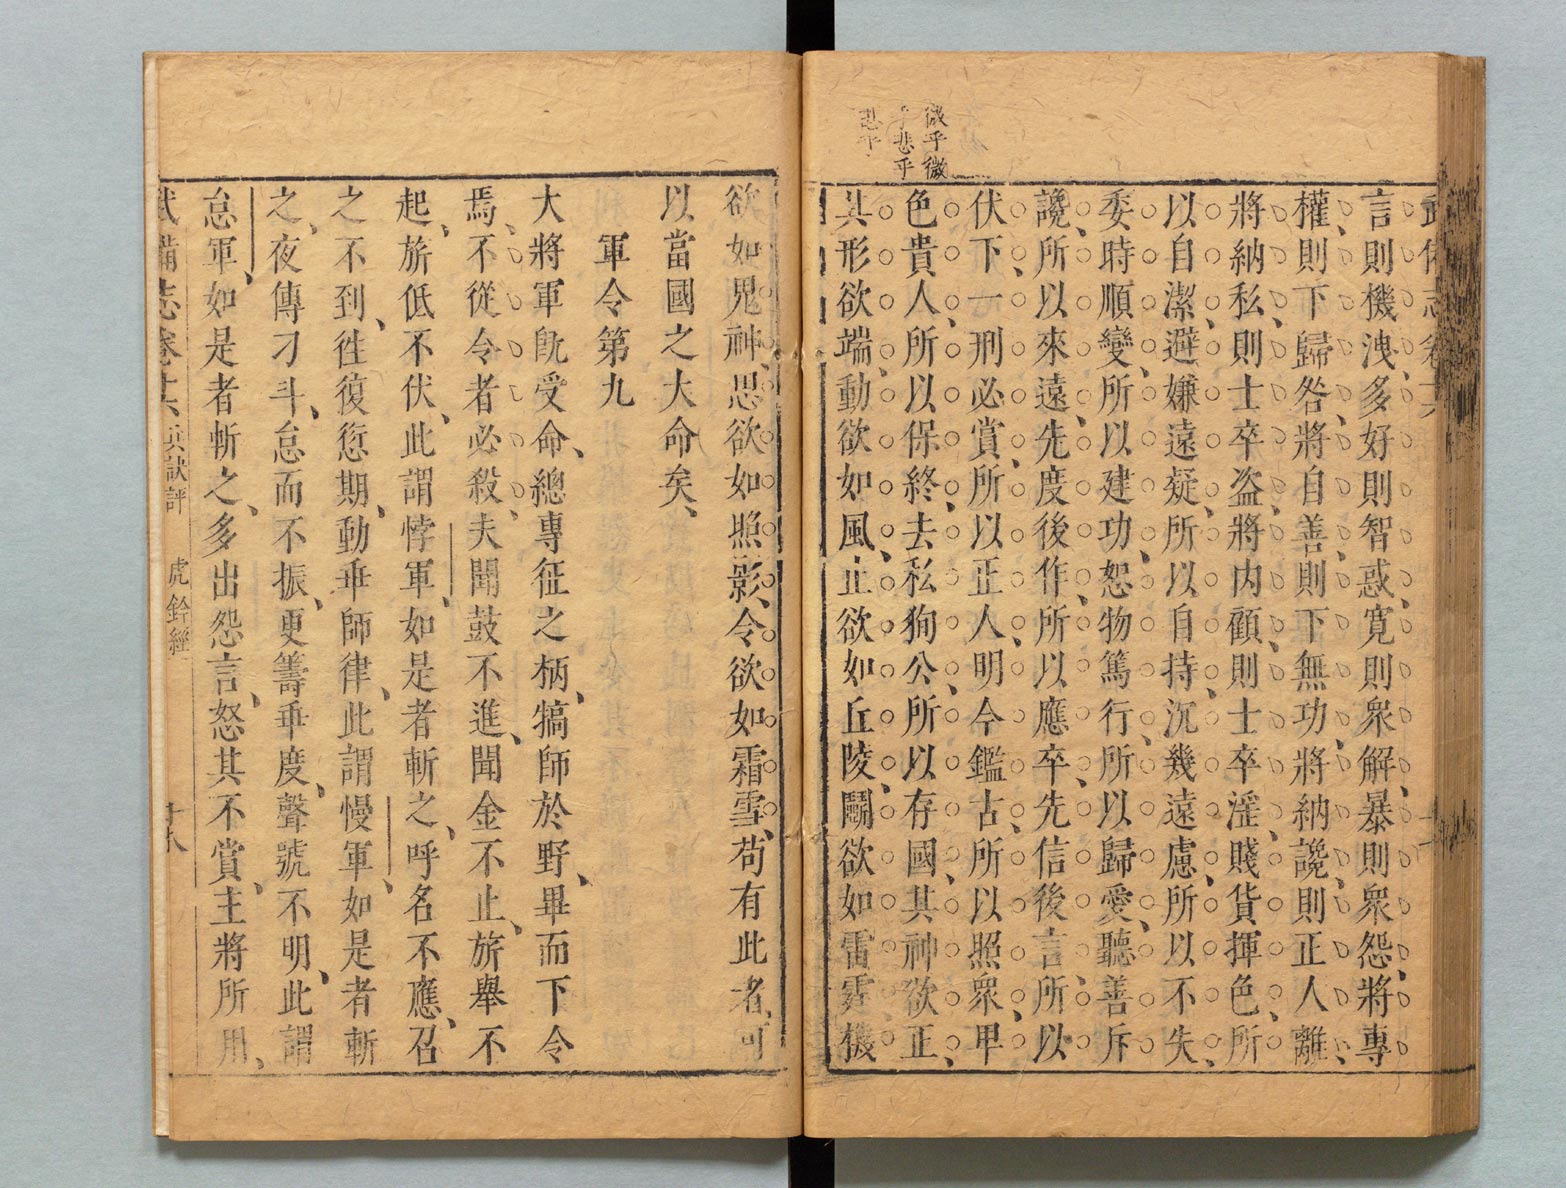 微乎微
乎悲乎
言則機洩、多好則智惑、寛則衆解、暴則衆怨、將專
權、則下歸咎、將自善、則下無功、將納讒、則正人離、
將納私、則士卒盗、將内顧、則士卒滛、賤貨揮色、所
以自潔、避嫌遠疑、所以自持、沉幾遠慮、所以不失、
委時順變、所以建功、恕物篤行、所以歸愛、聽善斥
讒、所以來遠、先度後作、所以應卒、先信後言、所以
伏下、一刑必賞、所以正人、明今鑑古、所以照衆、卑
色貴人、所以保終、去私狥公、所以存國、其神欲正、
其形欲端、動欲如風、止欲如丘陵、鬬欲如雷霆、機
欲如鬼神、思欲如照影、令欲如霜雪、苟有此者、可
以當國之大命矣、
軍令第九
大將軍旣受命、總專征之柄、犒師於野、畢而下令
焉、不從令者必殺、夫聞鼓不進、聞金不止、旂舉不
起、旂低不伏、此謂悖軍、如是者斬之、呼名不應、召
之不到、徃復愆期、動乖師律、此謂慢軍、如是者斬
之、夜傳刁斗、怠而不振、更籌乖度、聲號不明、此謂
怠軍、如是者斬之、多出怨言、怒其不賞、主將所用、
武備志卷 兵訣評 虎鈐經 十八